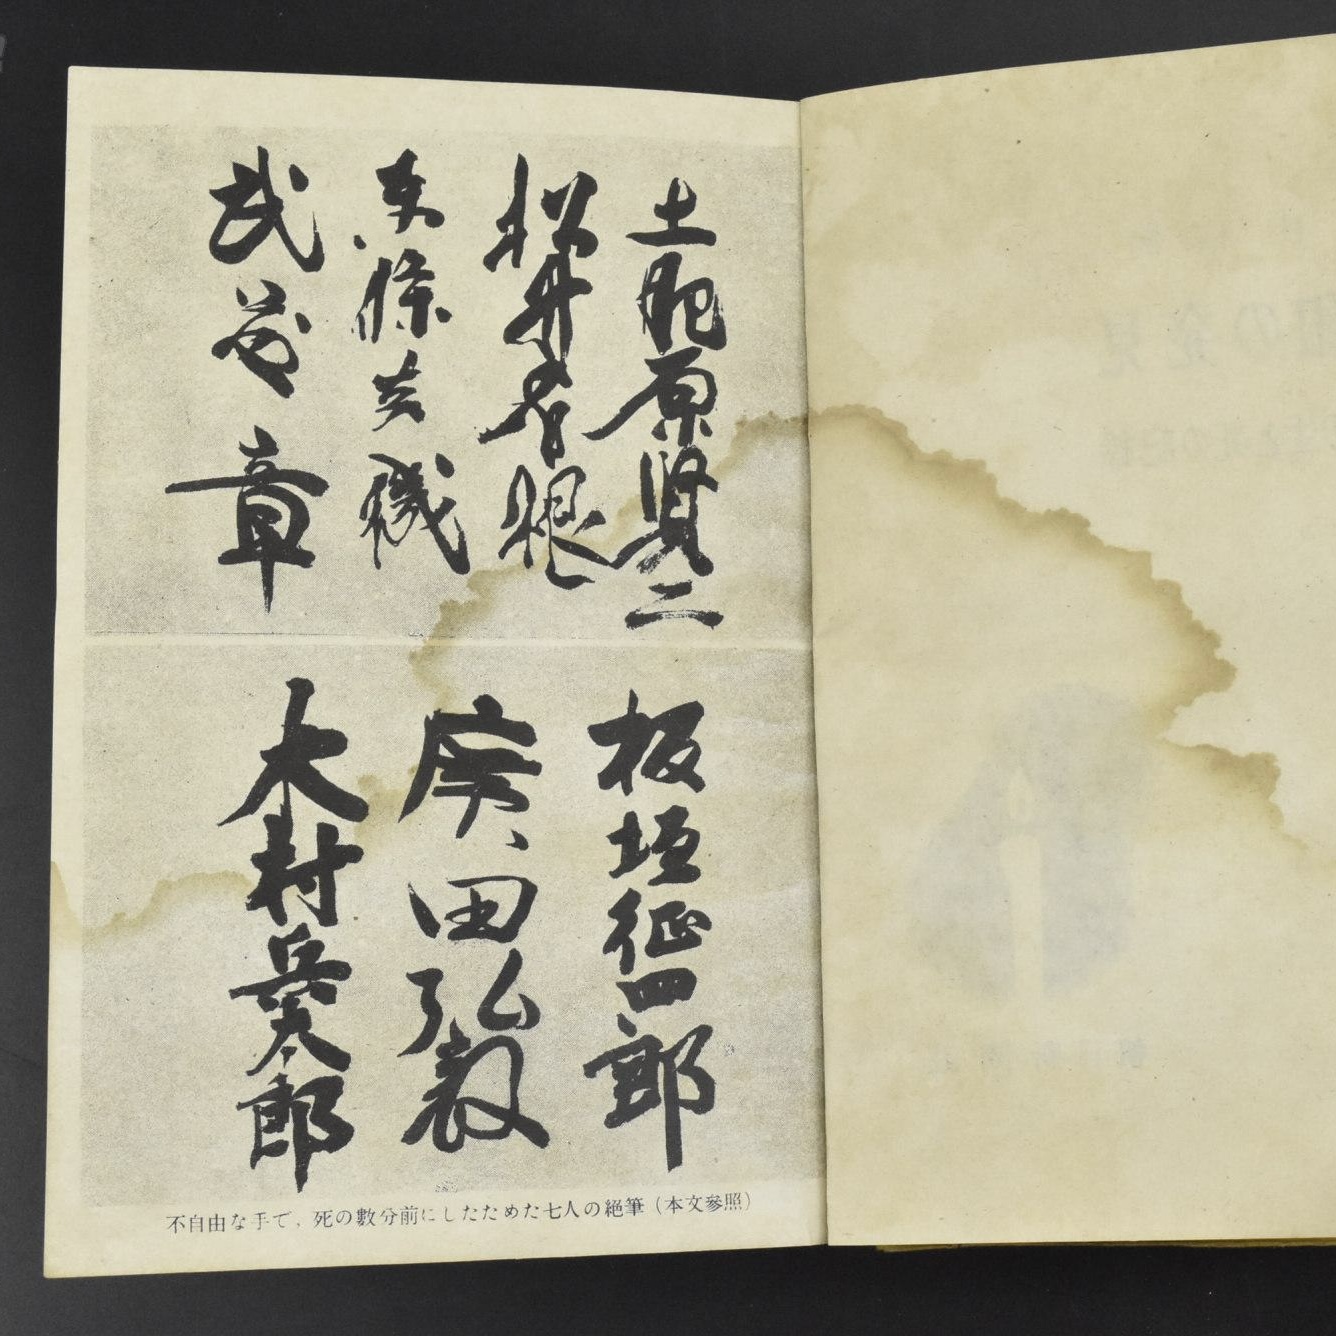 土肥原賢二
松井石根
東條英機
武藤章
板垣征四郎
廣田弘毅
木村兵太郎
不自由な手で、死の數分前にしたためた七人の絶筆（本文參照）
の発見